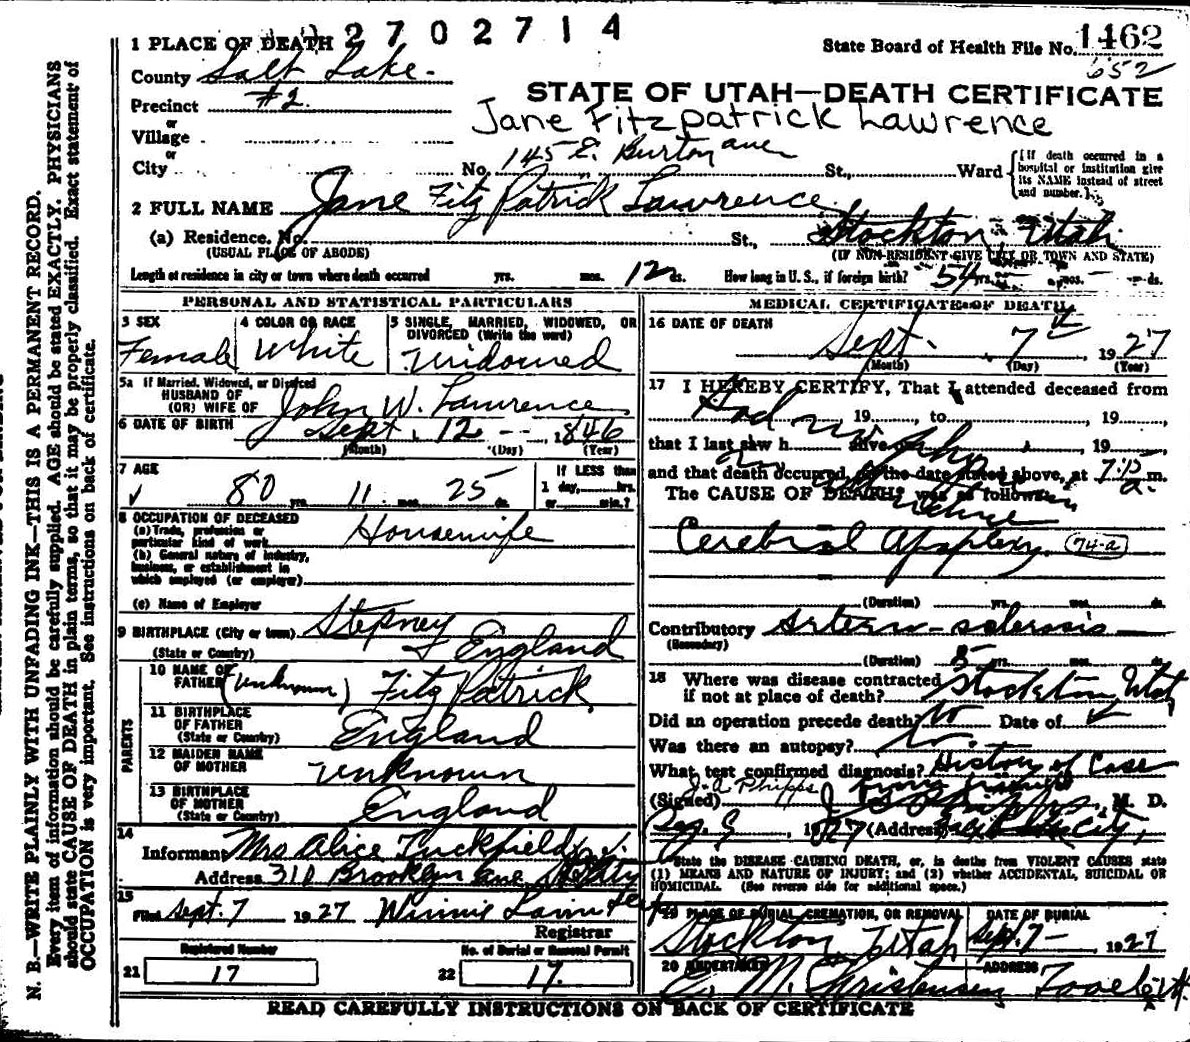 2702714
State Board of Health File No. 1462
652
1 PLACE OF DEATH
County Salt Lake
Precinct #2
or
Village
or
City
STATE OF UTAH—DEATH CERTIFICATE
Jane Fitzpatrick Lawrence
No. 145 E. Burton ave St., Ward
(If death occurred in a hospital or institution give its NAME instead of street and number.)
2 FULL NAME Jane Fitz Patrick Lawrence
(a) Residence, No. St., Stockton, Utah
(USUAL PLACE OF ABODE) (IF NON-RESIDENT GIVE CITY OR TOWN AND STATE)
Length of residence in city or town where death occurred yrs. mos. 12 ds. How long in U. S., if foreign birth? 54 yrs. mos. ds.
PERSONAL AND STATISTICAL PARTICULARS
3 SEX
Female
4 COLOR OR RACE
White
5 SINGLE, MARRIED, WIDOWED, OR DIVORCED (Write the word)
Widowed
5a If Married, Widowed, or Divorced
HUSBAND OF
(OR) WIFE OF John W. Lawrence
6 DATE OF BIRTH Sept. 12 1846
(Month) (Day) (Year)
7 AGE
80 yrs. 11 mos. 25 ds.
If LESS than
1 day, hrs.
or min.?
8 OCCUPATION OF DECEASED
(a) Trade, profession or particular kind of work Housewife
(b) General nature of industry, business, or establishment in which employed (or employer)
(c) Name of Employer
9 BIRTHPLACE (City or town) Stepney
(State or Country) England
PARENTS
10 NAME OF FATHER (unknown) Fitz Patrick
11 BIRTHPLACE OF FATHER
(State or Country) England
12 MAIDEN NAME OF MOTHER unknown
13 BIRTHPLACE OF MOTHER
(State or Country) England
14
Informant Mrs Alice Tuckfield
Address 310 Brooklyn ave
15
Filed Sept. 7 1927 Winnie
Registrar
Registered Number
21 17
No. of Burial or Removal Permit
22 17.
MEDICAL CERTIFICATE OF DEATH
16 DATE OF DEATH
Sept. 7th, 1927
(Month) (Day) (Year)
17 I HEREBY CERTIFY, That I attended deceased from
Had no , 19 , to , 19 ,
that I last saw h alive on , 19 ,
and that death occurred, on the date stated above, at 7:15 a. m.
The CAUSE OF DEATH* was as follows:
Cerebral Apoplexy 74-a
(Duration) yrs. mos. ds.
Contributory Arterio-sclerosis
(Secondary)
(Duration) 5 yrs. mos. ds.
18 Where was disease contracted
if not at place of death? Stockton Utah
Did an operation precede death? No Date of
Was there an autopsy? No.
What test confirmed diagnosis? History of Case
J. A. Phipps
(Signed) , M. D.
, 1927 (Address) City,
*State the DISEASE CAUSING DEATH, or, in deaths from VIOLENT CAUSES state (1) MEANS AND NATURE OF INJURY; and (2) whether ACCIDENTAL, SUICIDAL OR HOMICIDAL. (See reverse side for additional space.)
19 PLACE OF BURIAL, CREMATION, OR REMOVAL
Stockton, Utah
DATE OF BURIAL
Sept. 7 1927
20 UNDERTAKER
M. Christensen
ADDRESS
READ CAREFULLY INSTRUCTIONS ON BACK OF CERTIFICATE
N. B.—WRITE PLAINLY WITH UNFADING INK—THIS IS A PERMANENT RECORD.
Every item of information should be carefully supplied. AGE should be stated EXACTLY. PHYSICIANS
should state CAUSE OF DEATH in plain terms, so that it may be properly classified. Exact statement of
OCCUPATION is very important. See instructions on back of certificate.